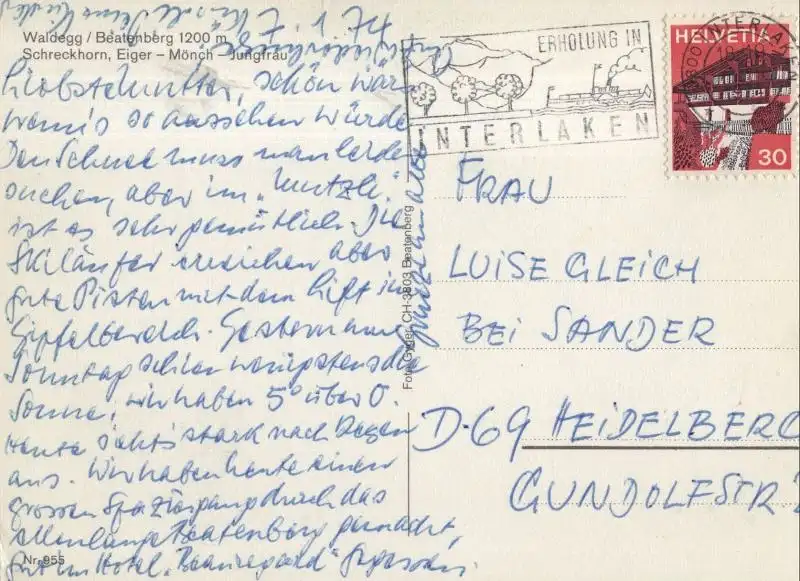 Waldegg / Beatenberg 1200 m
Schreckhorn, Eiger – Mönch – Jungfrau
Liebste Mutter, schön wär
wenn's so aussehen würde
Den Schnee muss man leider
suchen, aber im „Mutzli"
ist es sehr gemütlich. Die
Skiläufer erreichen aber
gute Pisten mit dem Lift im
Gipfelbereich. Gestern am
Sonntag schien wenigstens die
Sonne, wir haben 5° über 0.
Heute sieht's stark nach Regen
aus. Wir haben heute einen
grossen Spaziergang durch das
Beatenberg gemacht,
gut im Hotel „Beauregard" gegessen.
Nr. 955
Foto Gyger, CH-3803 Beatenberg
ERHOLUNG IN
INTERLAKEN
INTERLAKEN
HELVETIA
30
FRAU
LUISE GLEICH
BEI SANDER
D-69 HEIDELBERG
GUNDOLFSTR